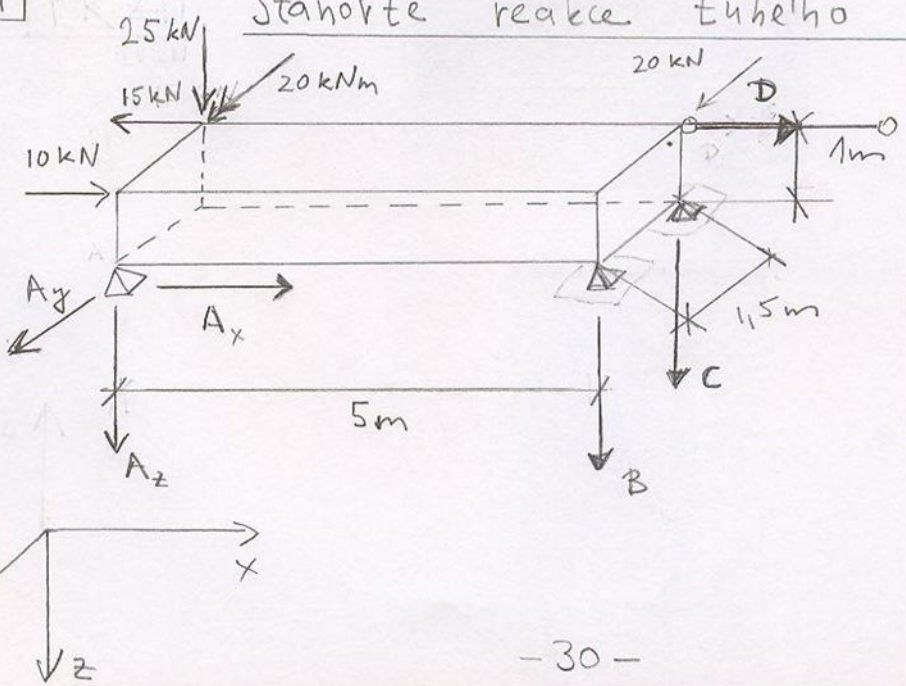 Stanovte reakce tuhého
25 kN
20 kNm
20 kN
15 kN
D
10 kN
1m
A
Ay
Ax
1,5m
C
5m
Az
B
x
z
- 30 -